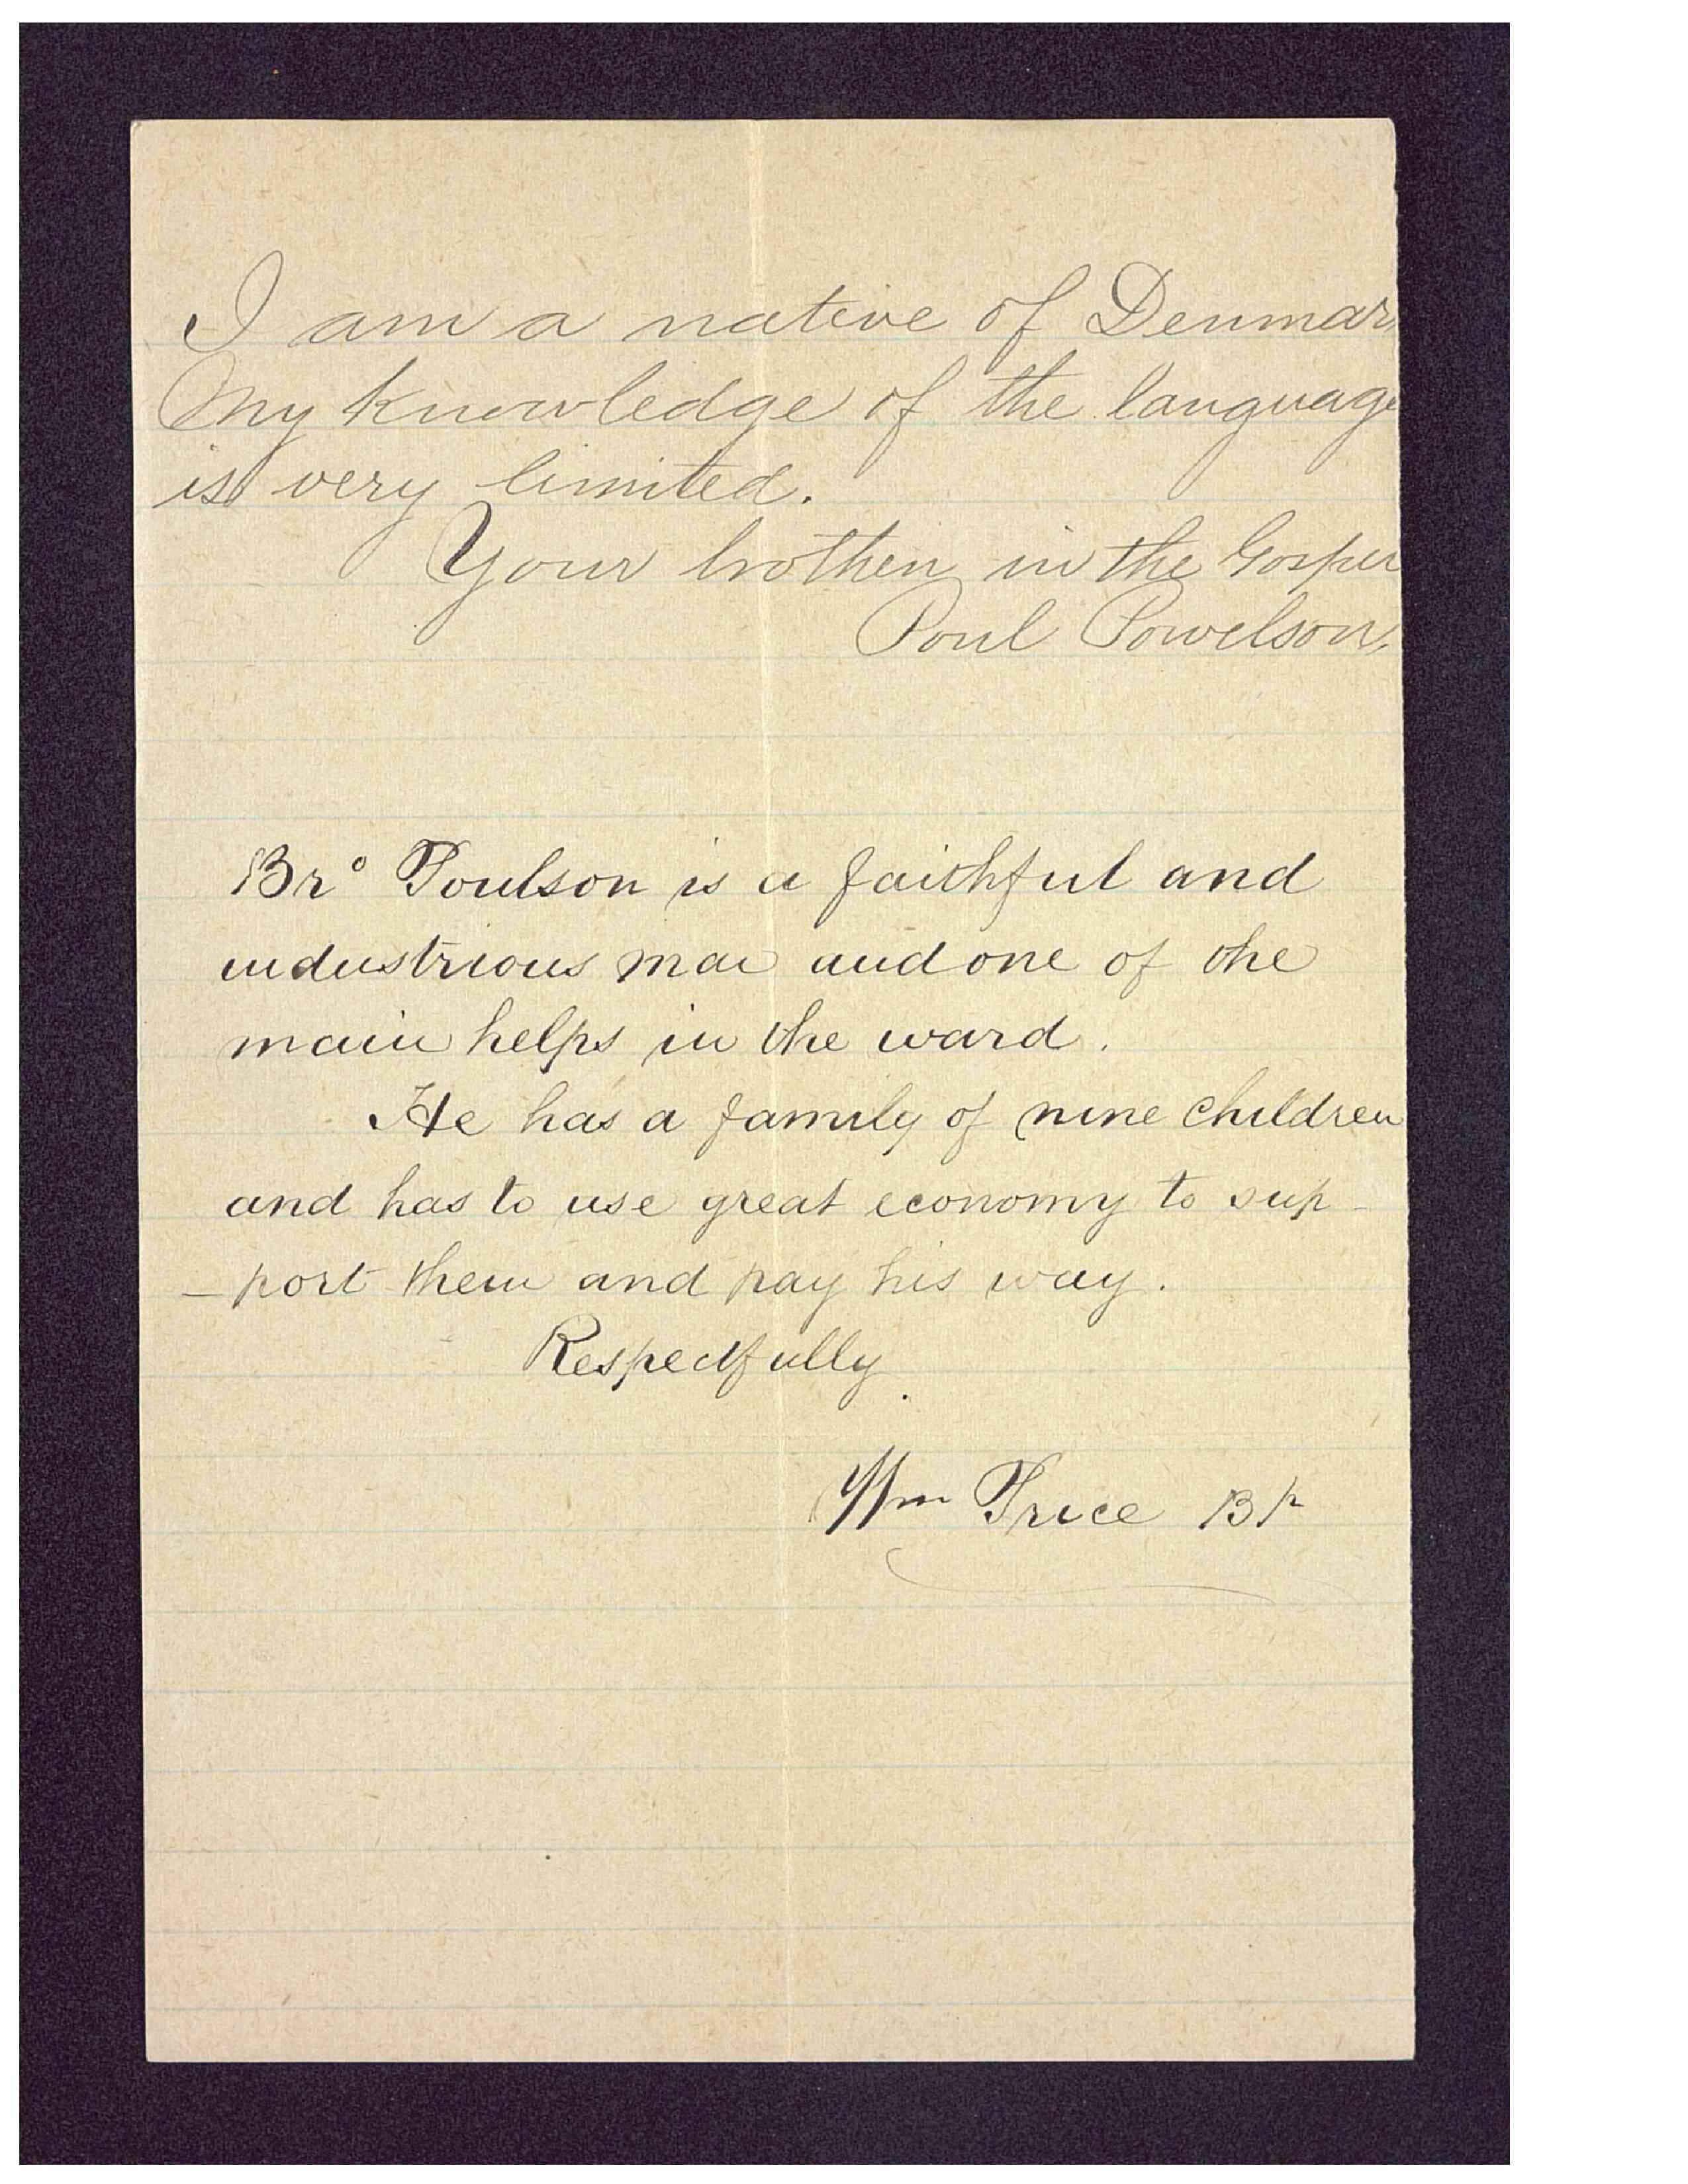 I am a native of Denmar
My knowledge of the language
is very limited.
Your brother in the Gospel
Poul Powelson.
Bro Poulson is a faithful and
industrious man and one of the
main helps in the ward.
He has a family of nine children
and has to use great economy to sup-
-port them and pay his way.
Respectfully
Wm Price Bp